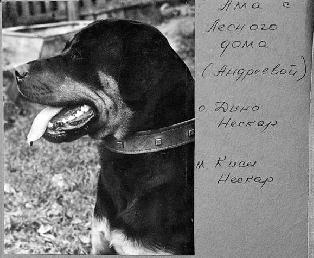 Яма с
Лесного
дома
(Андреевой)
о. Дино
Нескар
м. Кили
Нескар